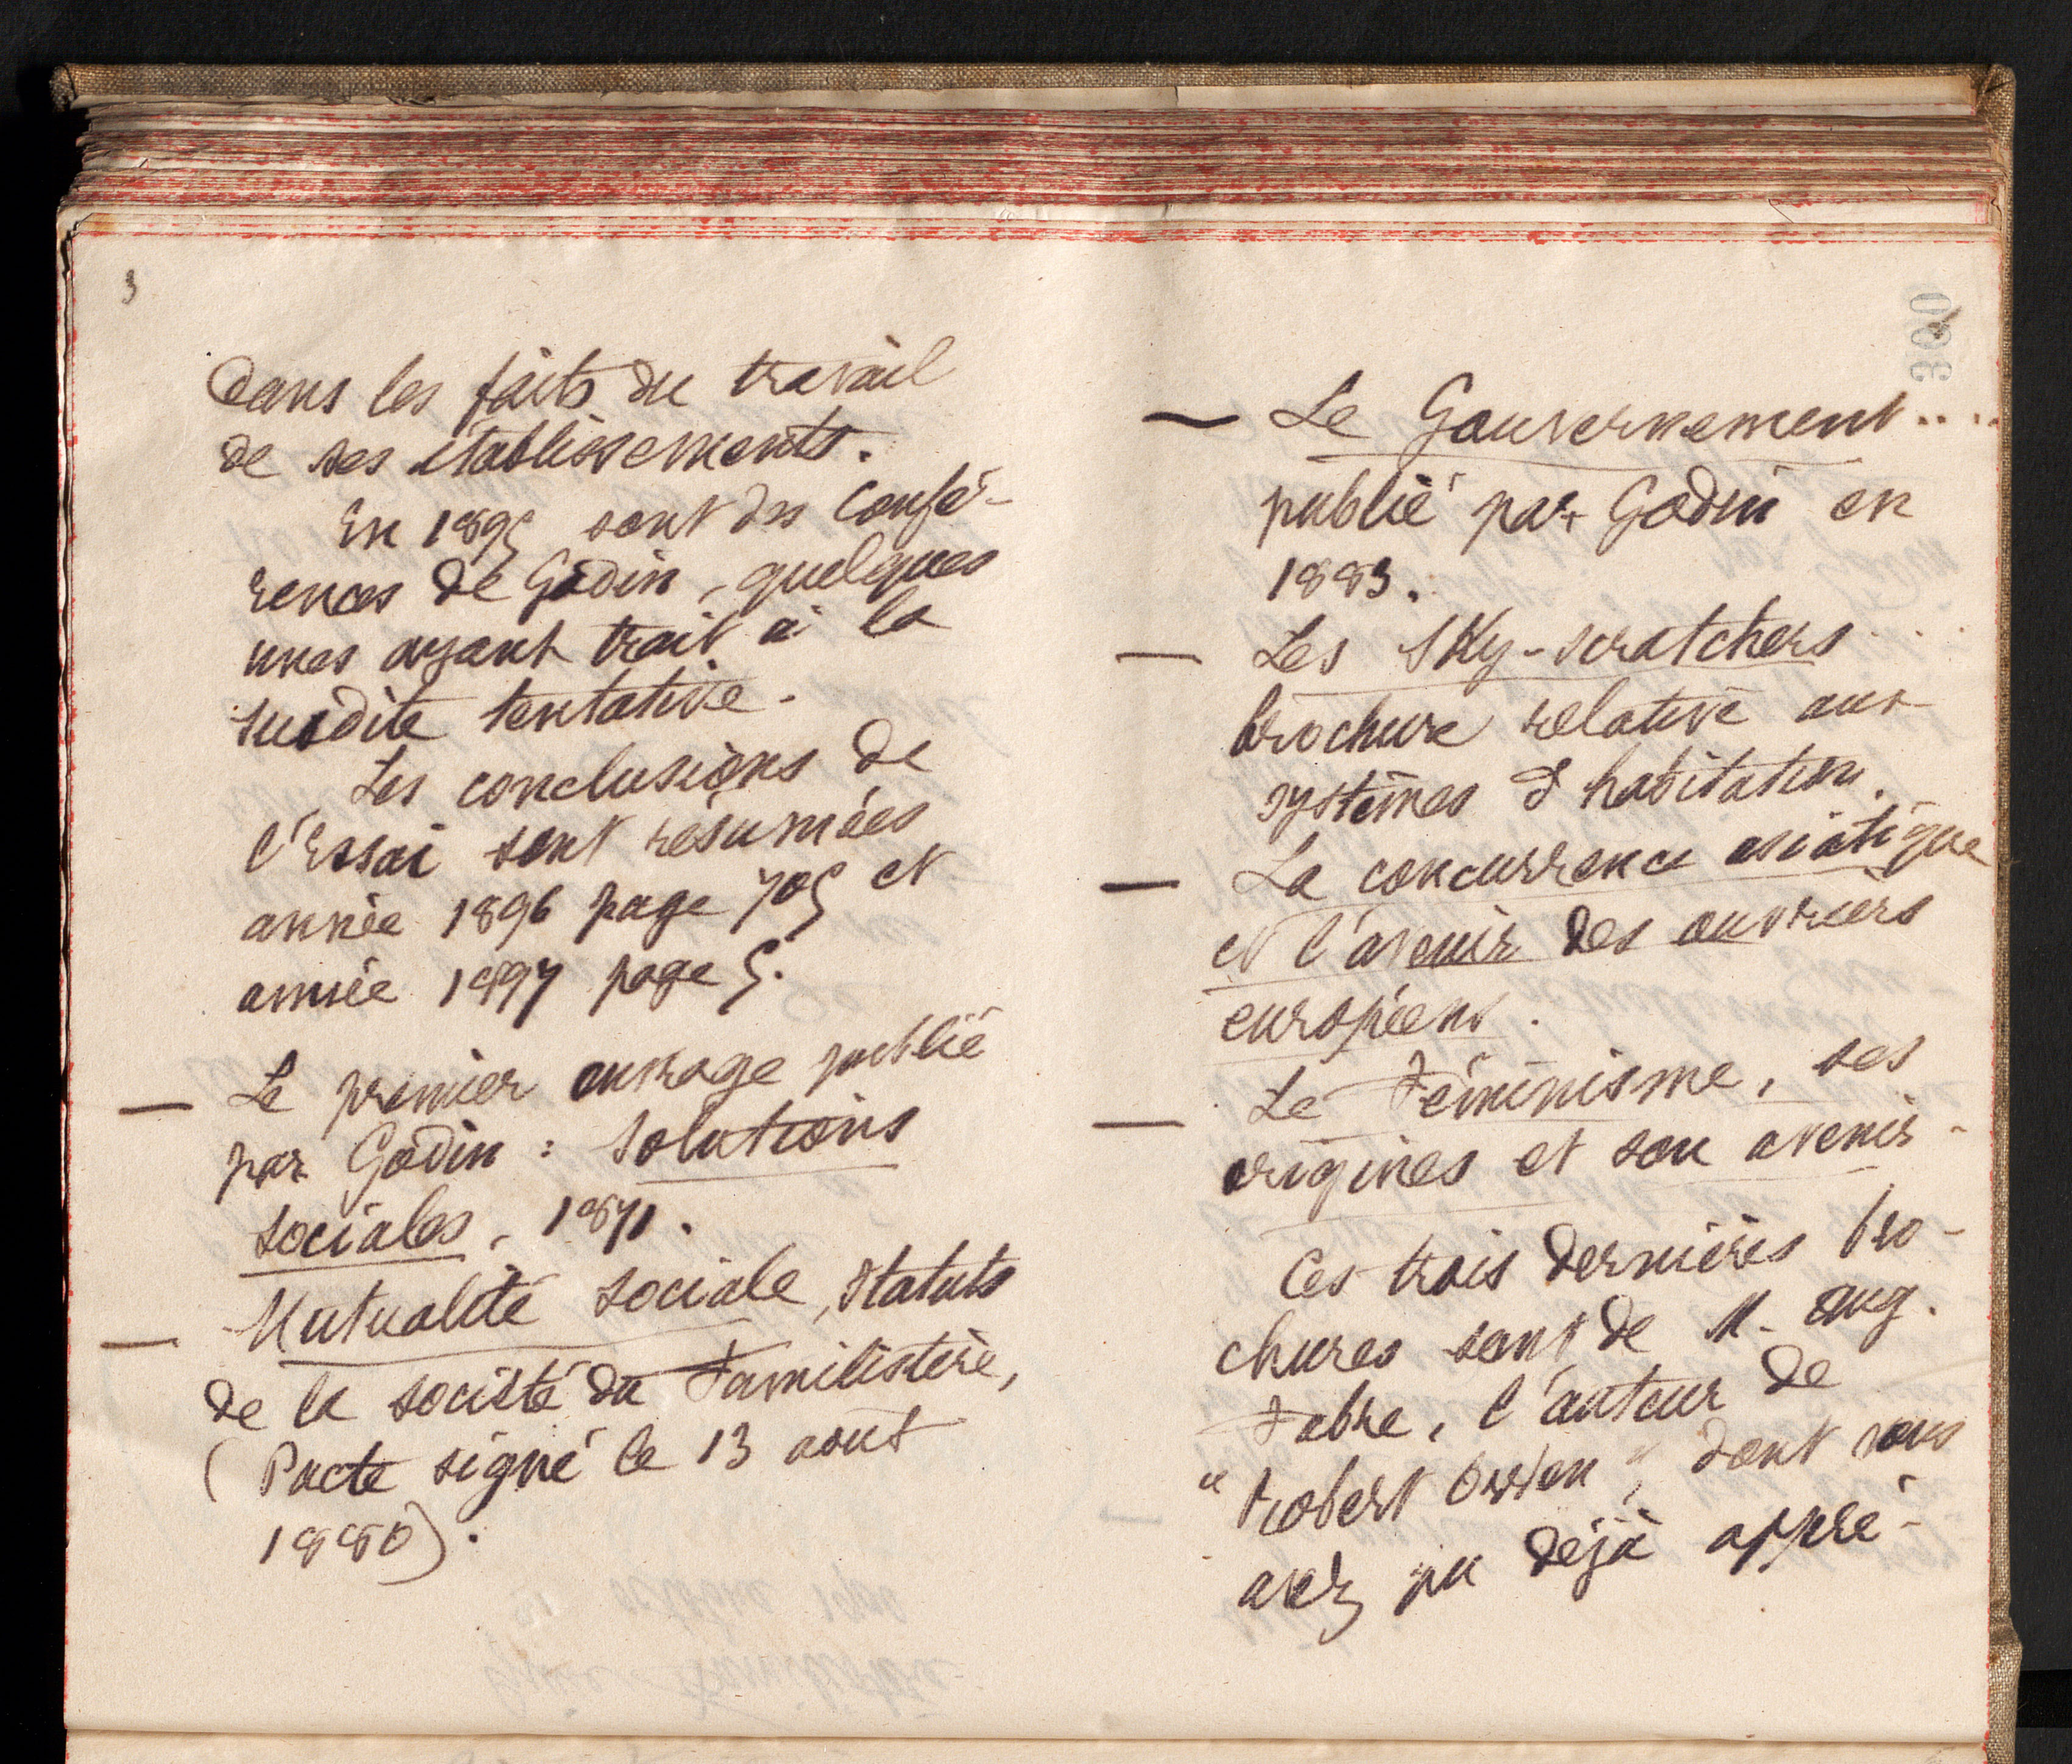 3
dans les faits du travail
de ses établissements.
En 1895 sont des Confé-
rences de Godin, quelques
unes ayant trait à la
susdite tentative.
Les conclusions de
l'Essai sont résumées
année 1896 page 705 et
année 1897 page 5.
— Le premier ouvrage publié
par Godin : Solutions
sociales, 1871.
— Mutualité sociale, statuts
de la société du Familistère,
(Pacte signé le 13 août
1880).
300
— Le Gouvernement....
publié par Godin en
1883.
— Les Sky-scratchers...
brochure relative aux
systèmes d'habitation.
— La concurrence asiatique
et l'avenir des ouvriers
européens.
— Le Féminisme, ses
origines et son avenir.
Ces trois dernières bro-
chures sont de M. Aug.
Fabre, l'auteur de
"Robert Owen", dont vous
avez pu déjà appré-